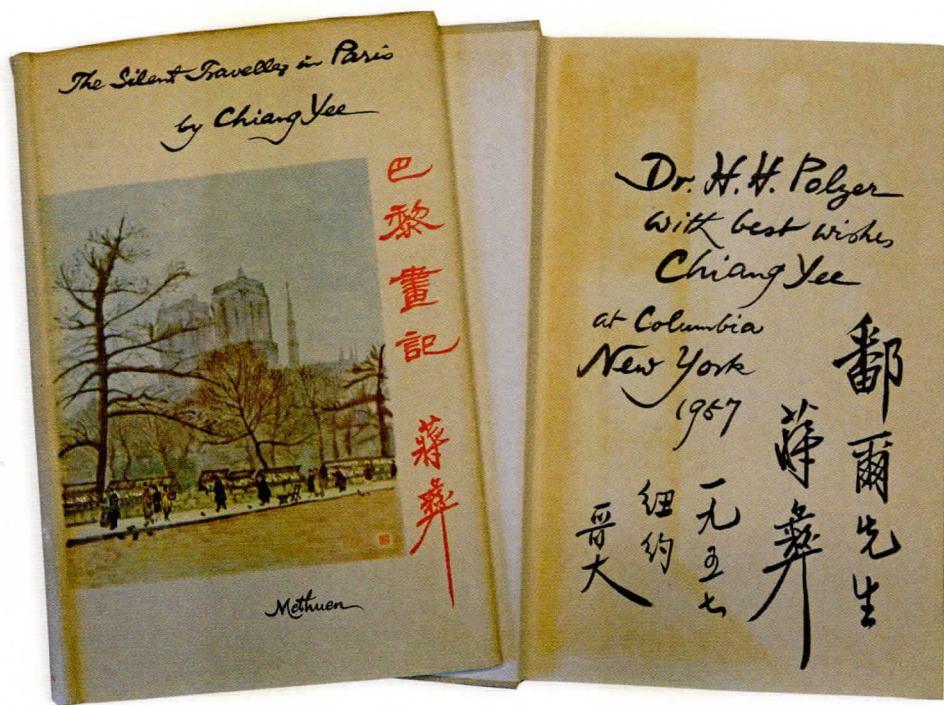 The Silent Traveller in Paris
by Chiang Yee
巴黎畫記
蔣彝
Methuen
Dr. H. H. Polzer
with best wishes
Chiang Yee
at Columbia
New York
1957
鄱爾先生
蔣彝
一九五七
紐約
哥大